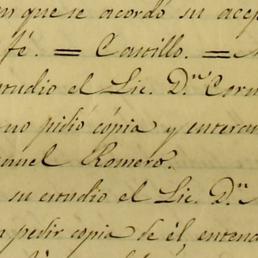 que se acordó su acep
fé. = Castillo. =
estudio el Lic. D.ⁿ Corn
no pidió copia y enteran
nuel Romero.
su estudio el Lic. D.ⁿ
pedir copia de él, entend